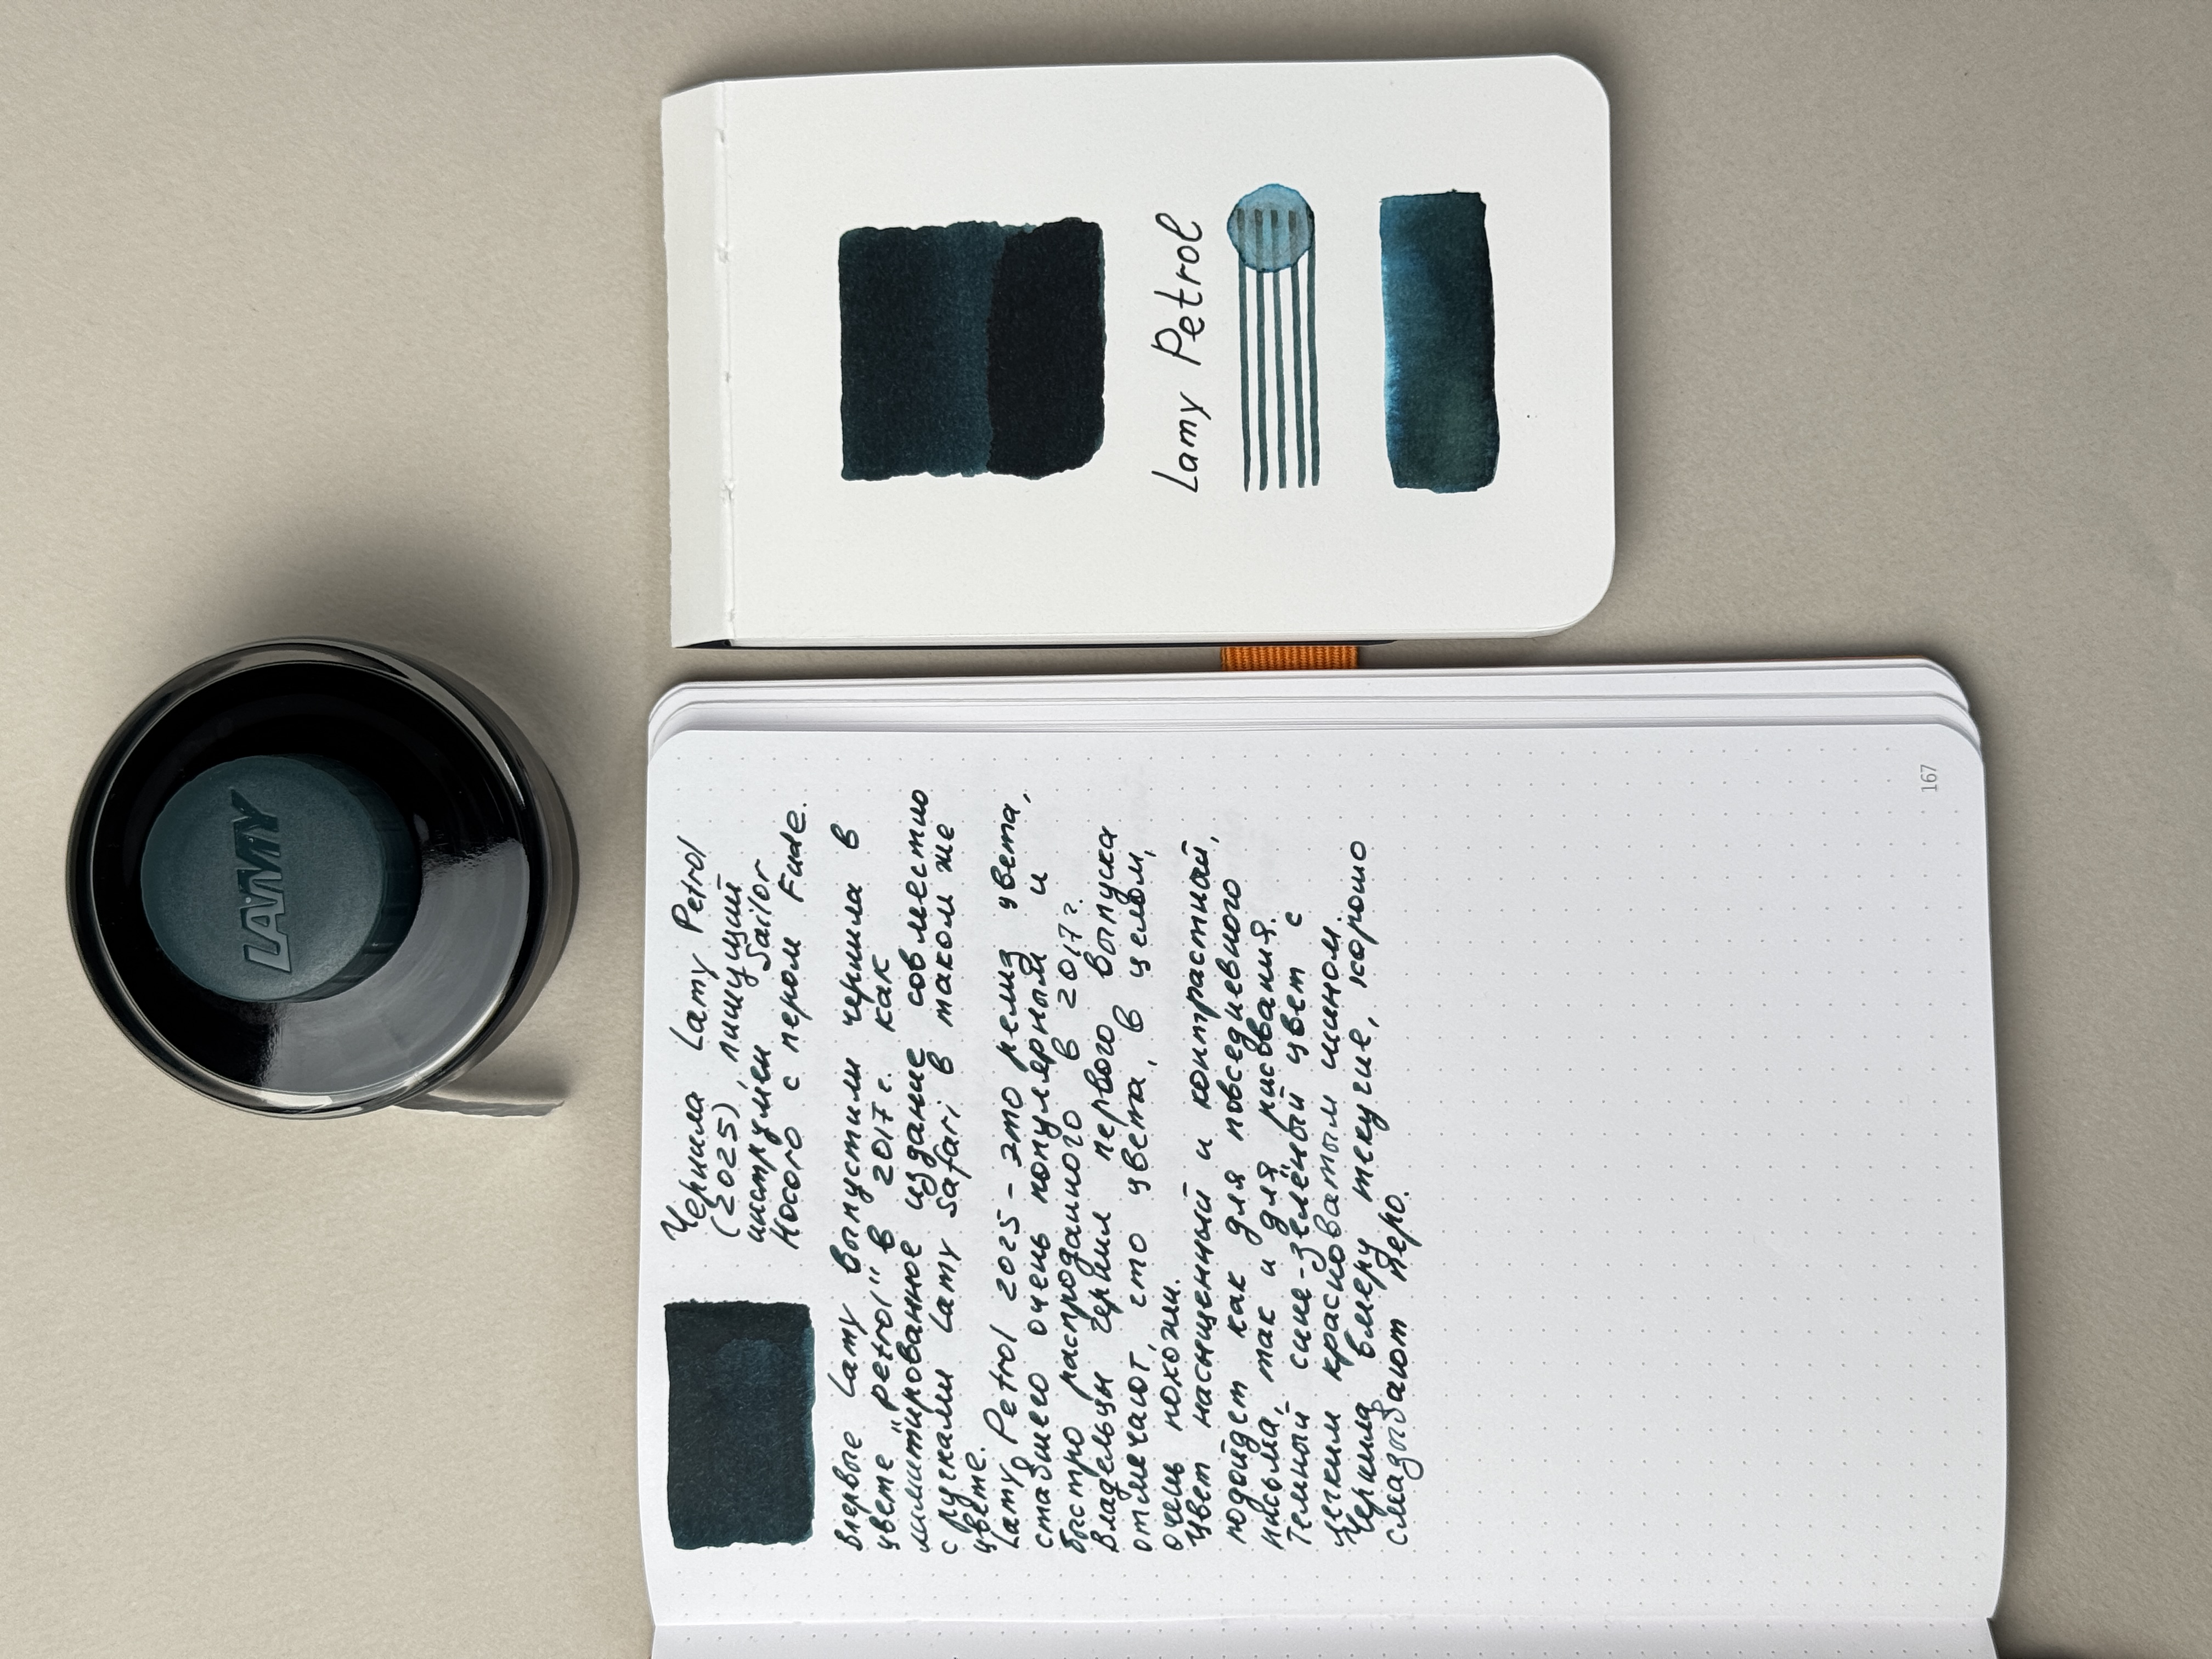 LAMY
Lamy Petrol
Чернила Lamy Petrol
(2025), пишущий
инструмен Sailor
Hocoro с пером Fude.
Впервые Lamy выпустили чернила в
цвете "petrol" в 2017 г. как
лимитированное издание совместно
с ручками Lamy Safari в таком же
цвете.
Lamy Petrol 2025 - это релиз цвета,
ставшего очень популярным и
быстро распроданного в 2017 г.
Владельцы чернил первого выпуска
отмечают, что цвета, в целом,
очень похожи.
Цвет насыщенный и контрастный,
подойдет как для повседневного
письма, так и для рисования.
Темный сине-зелёный цвет с
легким красноватым шином.
Чернила вмеру текучие, хорошо
смазывают перо.
167